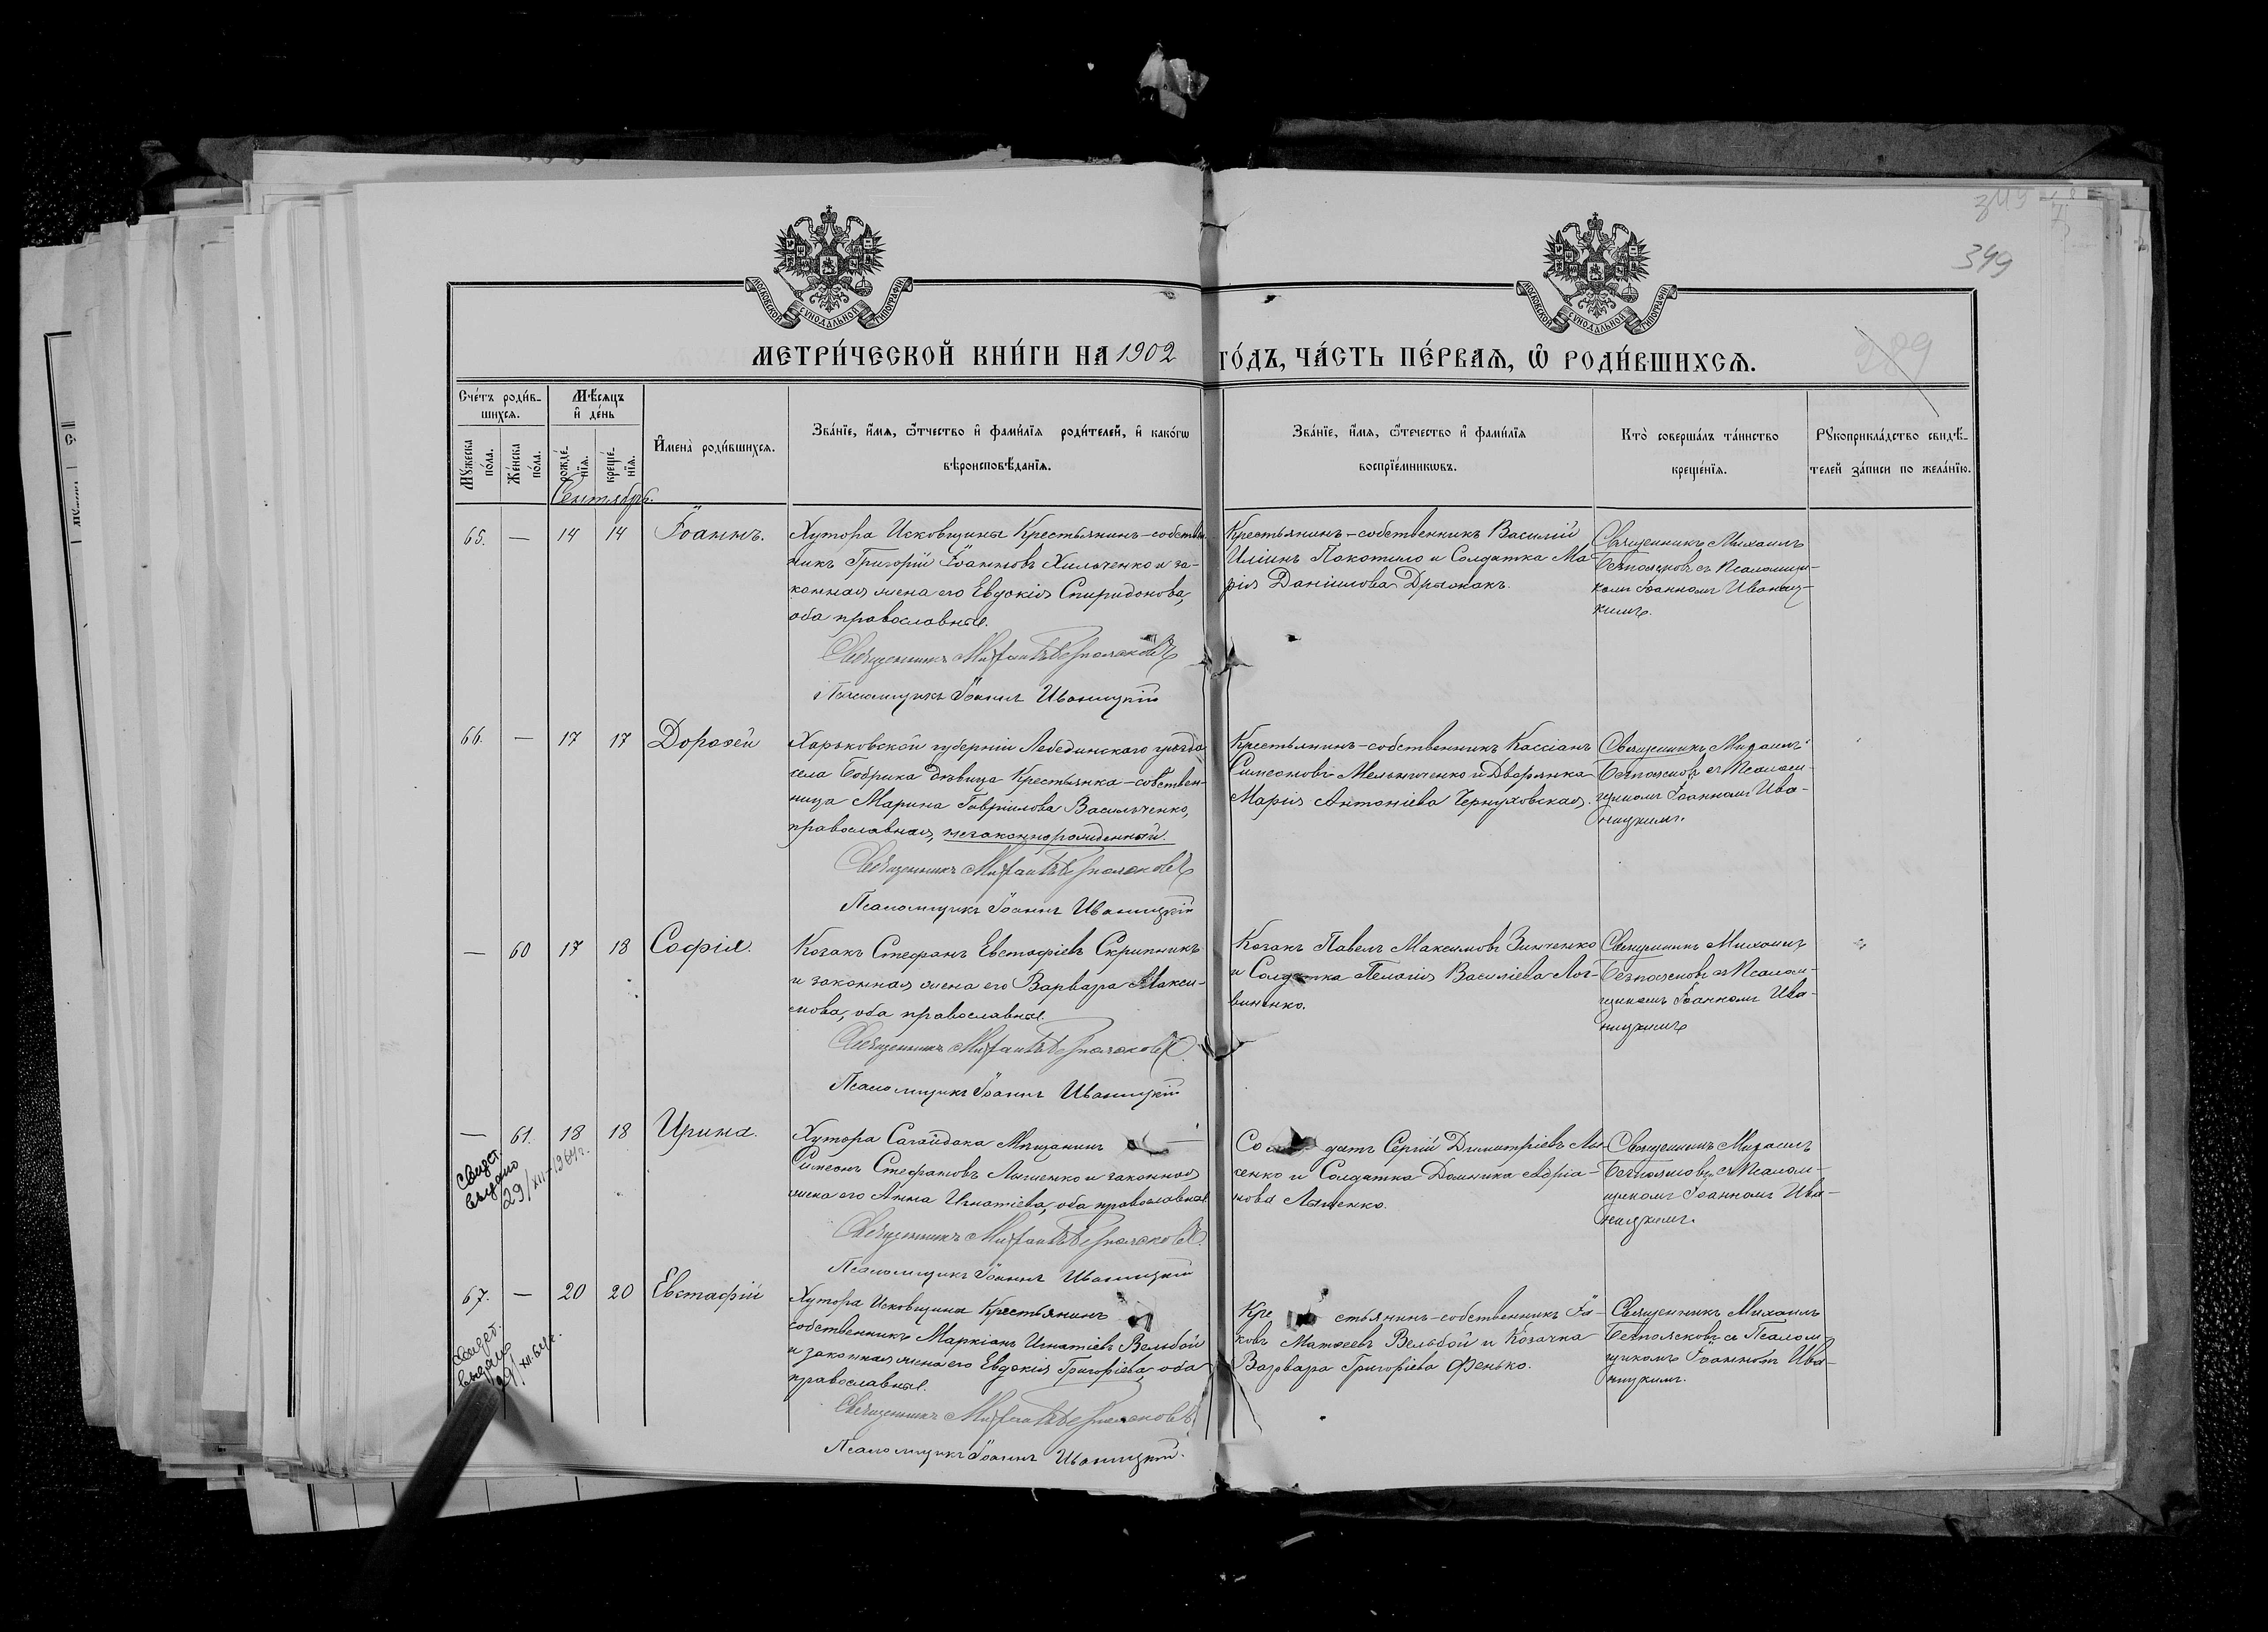 349
349
289
МОСКОВСКОЙ СѴНОДАЛЬНОЙ ТИПОГРАФІИ
МОСКОВСКОЙ СѴНОДАЛЬНОЙ ТИПОГРАФІИ
МЕТРИ́ЧЕСКОЙ КНИ́ГИ НА 1902 ГО́ДЪ, ЧА́СТЬ ПЕ́РВАЯ, Ѽ РОДИ́ВШИХСЯ.
Сче́тъ роди́в-
шихся.
Мꙋжеска по́ла.
Же́нска по́ла.
Мѣ́сяцъ
и҆ де́нь
рожде́-
нїя.
креще́-
нїя.
Сентябрь.
И҆мена̀ роди́вшихся.
Зва́нїе, и҆́мя, ѻ҆́тчество и҆ фами́лїя роди́телей, и҆ како́гѡ
вѣроисповѣ́данїя.
Зва́нїе, и҆́мя, ѻ҆те́чество и҆ фами́лїя
воспрїе́мникѡвъ.
Кто̀ соверша́лъ та́инство
креще́нїя.
Рꙋкоприкла́дство свидѣ́-
телей за́писи по жела́нїю.
65. — 14 14 Іоаннъ.
Хутора Исковщины Крестьянинъ-собствен
никъ Григорій Іоанновъ Хильченко и за-
конная жена его Евдокія Спиридонова,
оба православные.
Священникъ Михаилъ Безпоясковъ
Псаломщикъ Іоаннъ Иваницкій
Крестьянинъ-собственникъ Василій
Иліинъ Покотило и Солдатка Ма-
рія Даніилова
Священникъ Михаилъ
Безпоясковъ съ Псаломщи-
комъ Іоанномъ Иваниц-
кимъ.
66. — 17 17 Дороѳей
Харьковской губерніи Лебединскаго уѣзда
села Бобрика дѣвица Крестьянка-собствен-
ница Марина Гавріилова Васильченко,
православная, незаконнорожденный.
Священникъ Михаилъ Безпоясковъ
Псаломщикъ Іоаннъ Иваницкій
Крестьянинъ-собственникъ Кассіанъ
Симеоновъ Мельниченко и Дворянка
Марія Антоніева Чернуховская.
Священникъ Михаилъ
Безпоясковъ съ Псалом-
щикомъ Іоанномъ Ива-
ницкимъ.
— 60 17 18 Софія.
Козакъ Стефанъ Евстафіевъ Скрипникъ
и законная жена его Варвара Макси-
мова, оба православные.
Священникъ Михаилъ Безпоясковъ
Псаломщикъ Іоаннъ Иваницкій
Козакъ Павелъ Максимовъ Зинченко
и Солдатка Пелагія Василіева Лог-
виненко.
Священникъ Михаилъ
Безпоясковъ съ Псалом-
щикомъ Іоанномъ Ива-
ницкимъ
— 61. 18 18 Ирина.
свидет.
выдано
29/XII-1964г.
Хутора Сагайдака Мѣщанинъ
Симеонъ Стефановъ Ляшенко и законная
жена его Анна Игнатіева, оба православные
Священникъ Михаилъ Безпоясковъ
Псаломщикъ Іоаннъ Иваницкій
Солдатъ Сергій Димитріевъ
сенко и Солдатка Домника Адріа-
нова Ляшенко.
Священникъ Михаилъ
Безпоясковъ съ Псалом-
щикомъ Іоанномъ Ива-
ницкимъ.
67. — 20 20 Евстафій
свидет.
выдано
29/XII-64г.
Хутора Исковщина Крестьянинъ
собственникъ Маркіанъ Игнатіевъ Вельбой
и законная жена его Евдокія Григоріева, оба
православные.
Священникъ Михаилъ Безпоясковъ
Псаломщикъ Іоаннъ Иваницкій.
Крестьянинъ-собственникъ Іа-
ковъ Матѳеевъ Вельбой и Козачка
Варвара Григоріева Фенько.
Священникъ Михаилъ
Безпоясковъ съ Псалом
щикомъ Іоанномъ Ива-
ницкимъ.